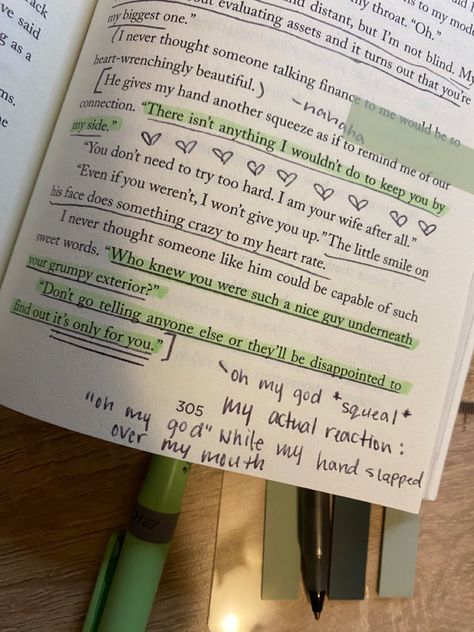 ack
ve said
g as a
ms.
e
s to my mode
my throat. "Oh."
and distant, but I'm not blind. My
out evaluating assets and it turns out that you're
my biggest one."
I never thought someone talking finance to me would be so
heart-wrenchingly beautiful.
He gives my hand another squeeze as if to remind me of our
-hahaha
connection. "There isn't anything I wouldn't do to keep you by
my side."
"You don't need to try too hard. I am your wife after all."
"Even if you weren't, I won't give you up." The little smile on
his face does something crazy to my heart rate.
I never thought someone like him could be capable of such
sweet words. "Who knew you were such a nice guy underneath
your grumpy exterior?"
"Don't go telling anyone else or they'll be disappointed to
find out it's only for you."
oh my god *squeal*
305
my actual reaction:
"oh my god" while my hand slapped
over my mouth